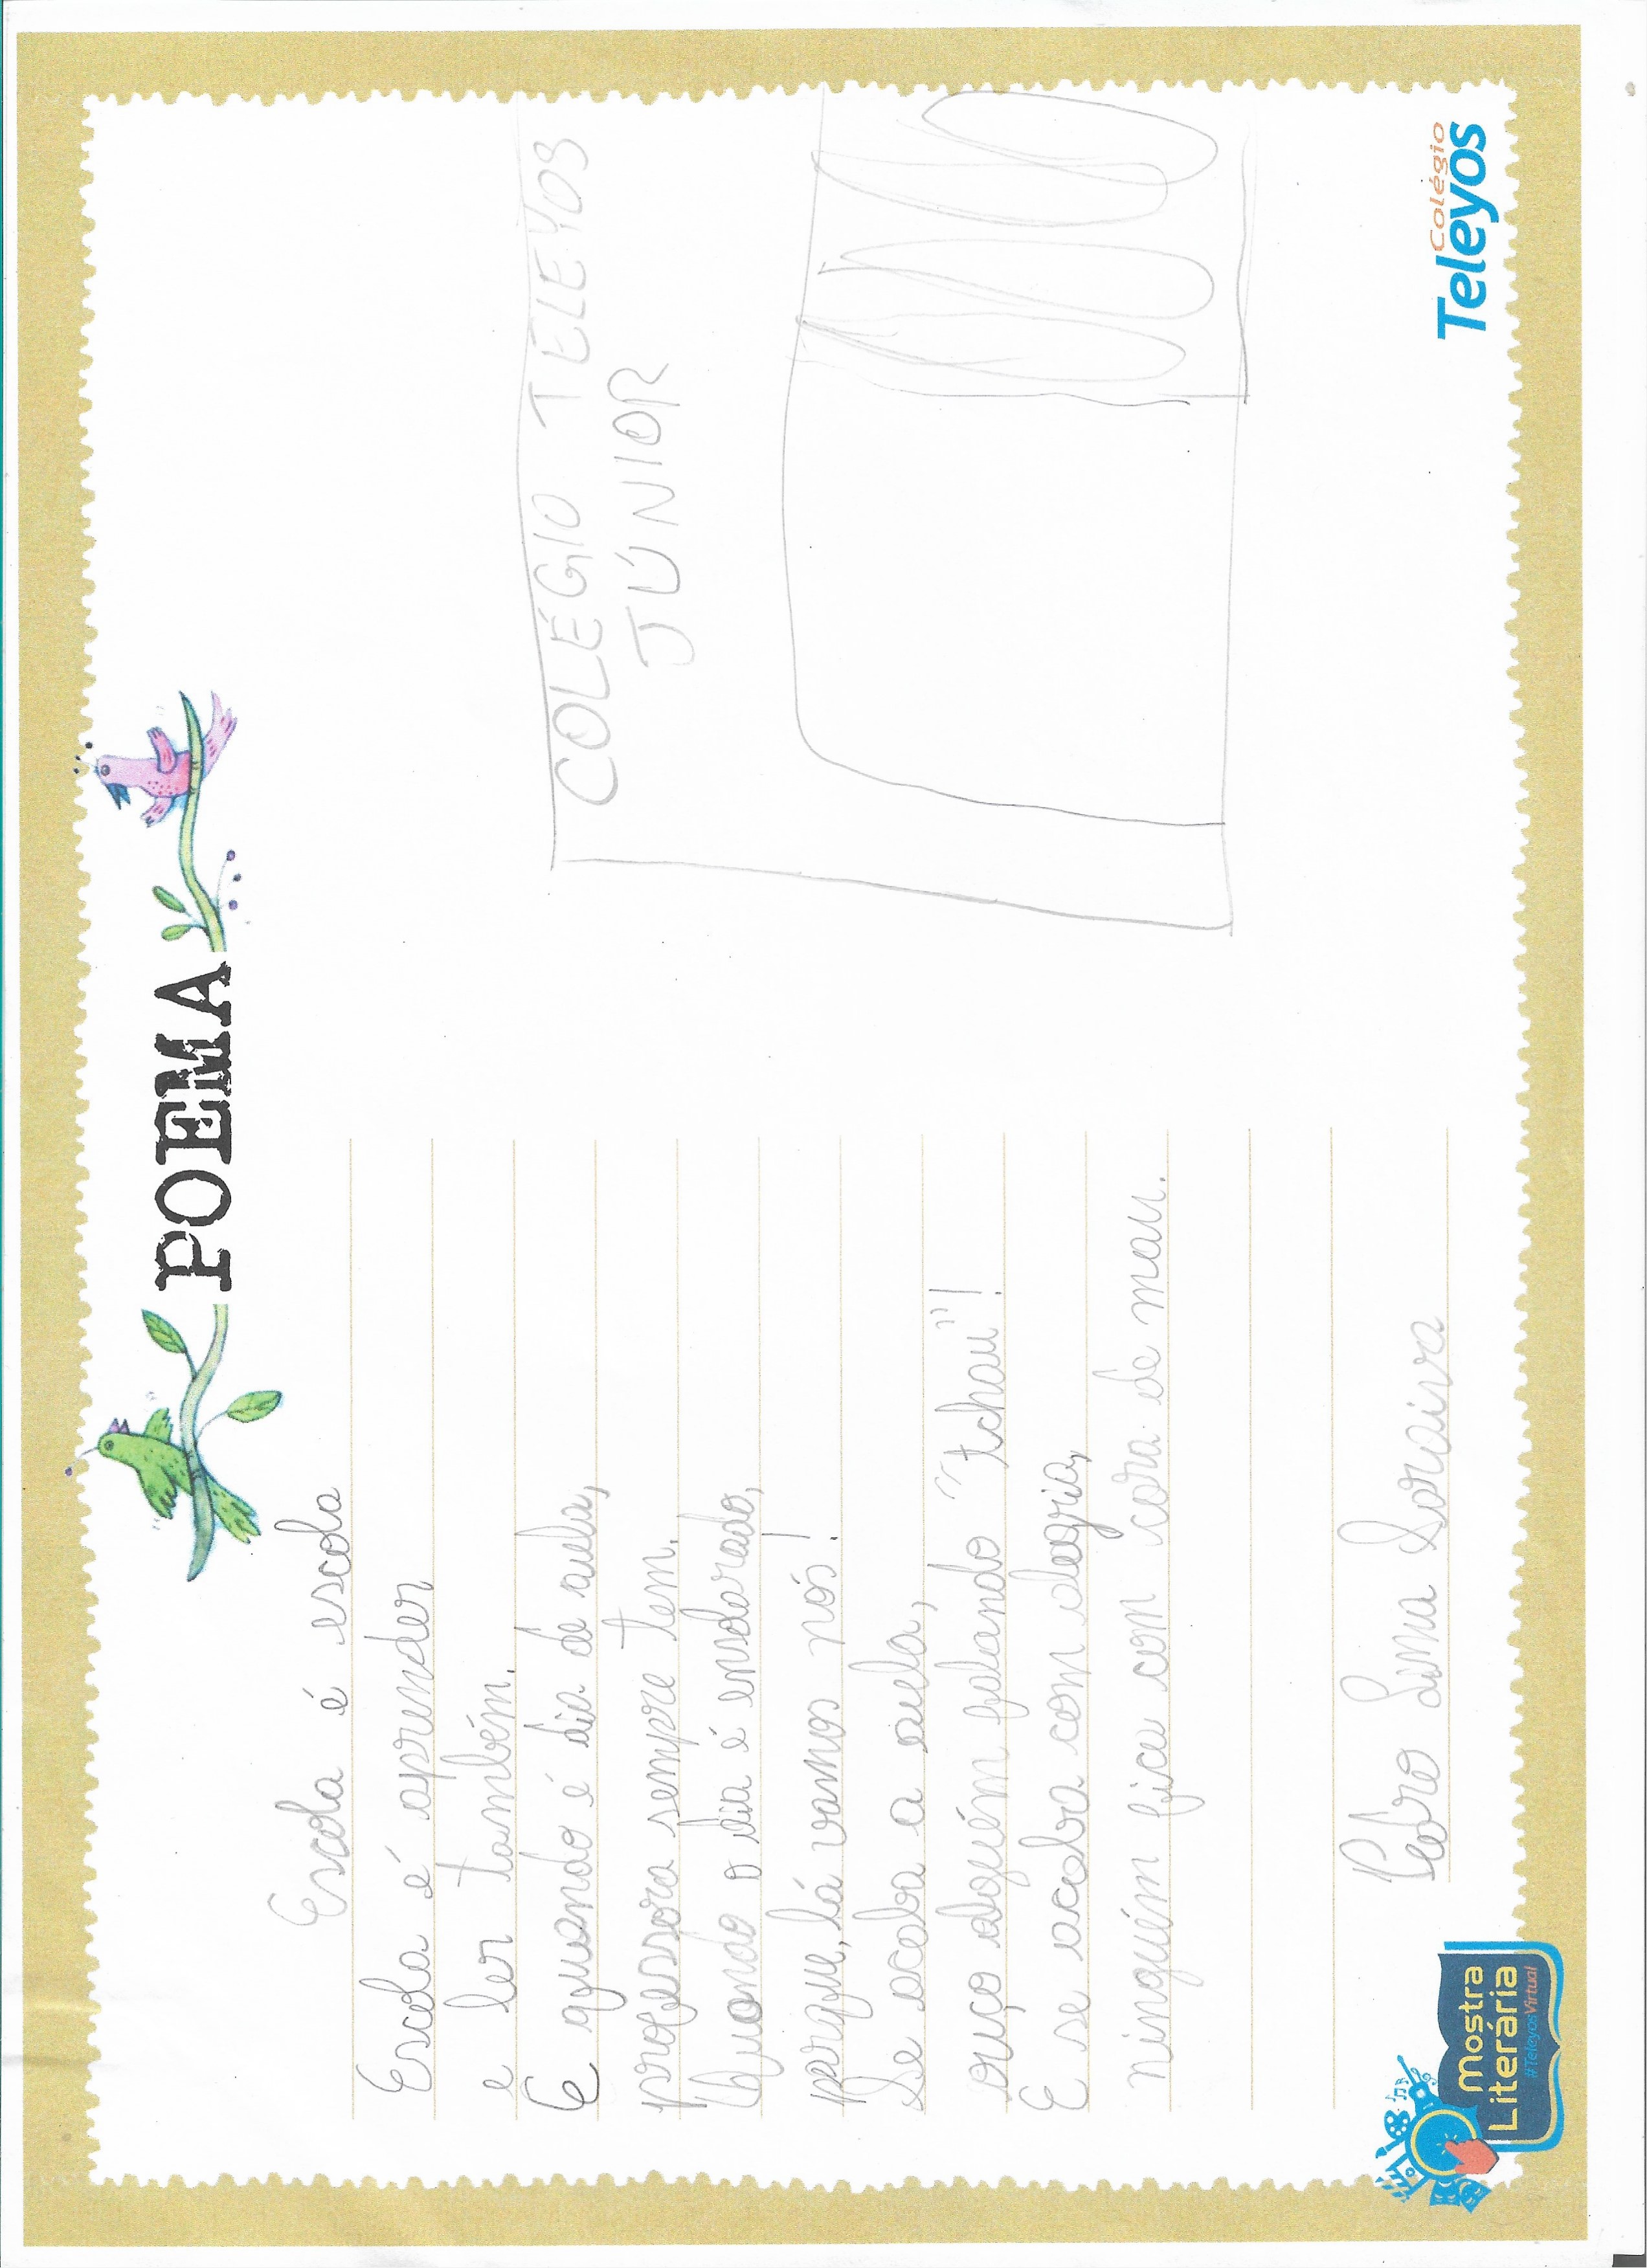 POEMA
Escola é escola
Escola é aprender
e ler também.
E quando é dia de aula,
professora sempre tem.
Quando o dia é ensolarado,
porque, lá vamos nós!
Se acaba a aula,
ouço alguém falando "tchau"!
E se acaba com alegria,
ninguém fica com cara de mau.
Pedro Lima Saraiva
COLÉGIO TELEYOS
JÚNIOR
Mostra
Literária
#TeleyosVirtual
Colégio
Teleyos